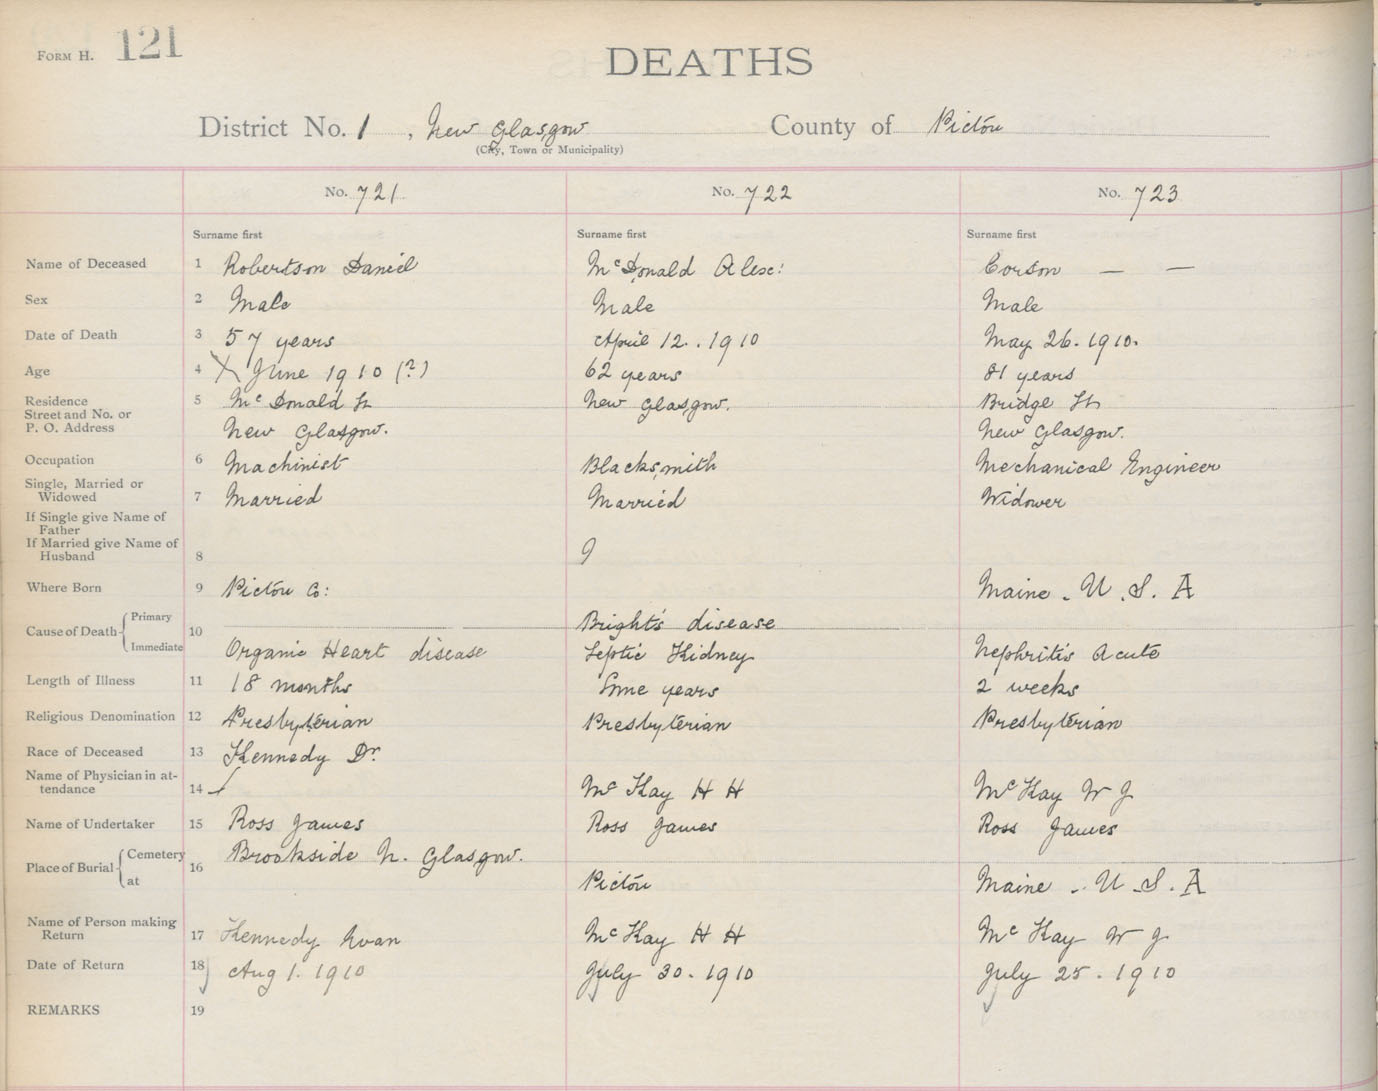 FORM H. 121
DEATHS
District No. 1, New Glasgow County of Pictou
(City, Town or Municipality)
No. 721 No. 722 No. 723
Surname first Surname first Surname first
Name of Deceased 1 Robertson Daniel McDonald Alex: Corson — —
Sex 2 Male Male Male
Date of Death 3 57 years April 12. 1910 May 26. 1910.
Age 4 X June 1910 (?) 62 years 81 years
Residence 5 McDonald St New Glasgow. Bridge St
Street and No. or
P. O. Address New Glasgow. New Glasgow.
Occupation 6 Machinist Blacksmith Mechanical Engineer
Single, Married or
Widowed 7 Married Married Widower
If Single give Name of
Father
If Married give Name of
Husband 8
Where Born 9 Pictou Co: Maine . U. S. A
Primary Bright's disease
Cause of Death 10
Immediate Organic Heart disease Septic Kidney Nephritis Acute
Length of Illness 11 18 months Some years 2 weeks
Religious Denomination 12 Presbyterian Presbyterian Presbyterian
Race of Deceased 13 Kennedy Dr.
Name of Physician in at-
tendance 14 McKay H H McKay W J
Name of Undertaker 15 Ross James Ross James Ross James
Cemetery Brookside N. Glasgow.
Place of Burial 16
at Pictou Maine . U. S. A
Name of Person making
Return 17 Kennedy Evan McKay H H McKay W J
Date of Return 18 Aug 1. 1910 July 30. 1910 July 25. 1910
REMARKS 19